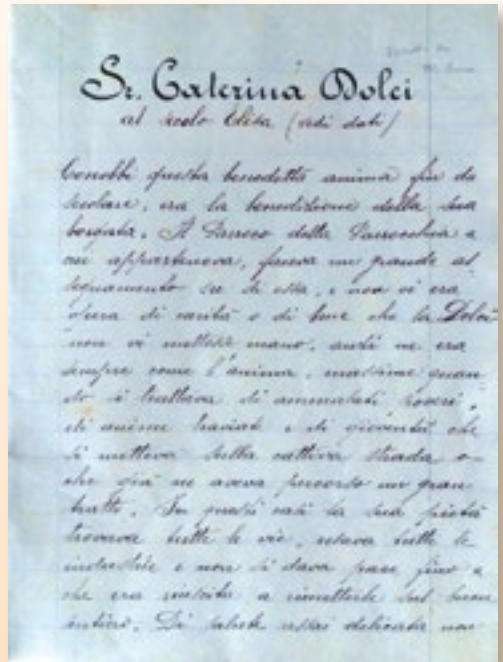 Sr. Caterina Dolci
al secolo Elisa (vedi dati)
Conobbi questa benedetta anima fin da
scolare, era la benedizione della sua
borgata. Il Parroco della Parrocchia a
cui apparteneva, faceva un grande as
segnamento su di essa, e non vi era
opera di carità o di bene che la Dolci
non vi mettesse mano, anzi ne era
sempre come l'anima, massime quan
do si trattava di ammalati poveri,
di anime traviate e di gioventù che
si metteva sulla cattiva strada o
che già ne aveva percorso un gran
tratto. In questi casi la sua pietà
trovava tutte le vie, usava tutte le
industrie e non si dava pace fino a
che era riuscita a rimetterle sul buon
sentiero. Di salute assai delicata non